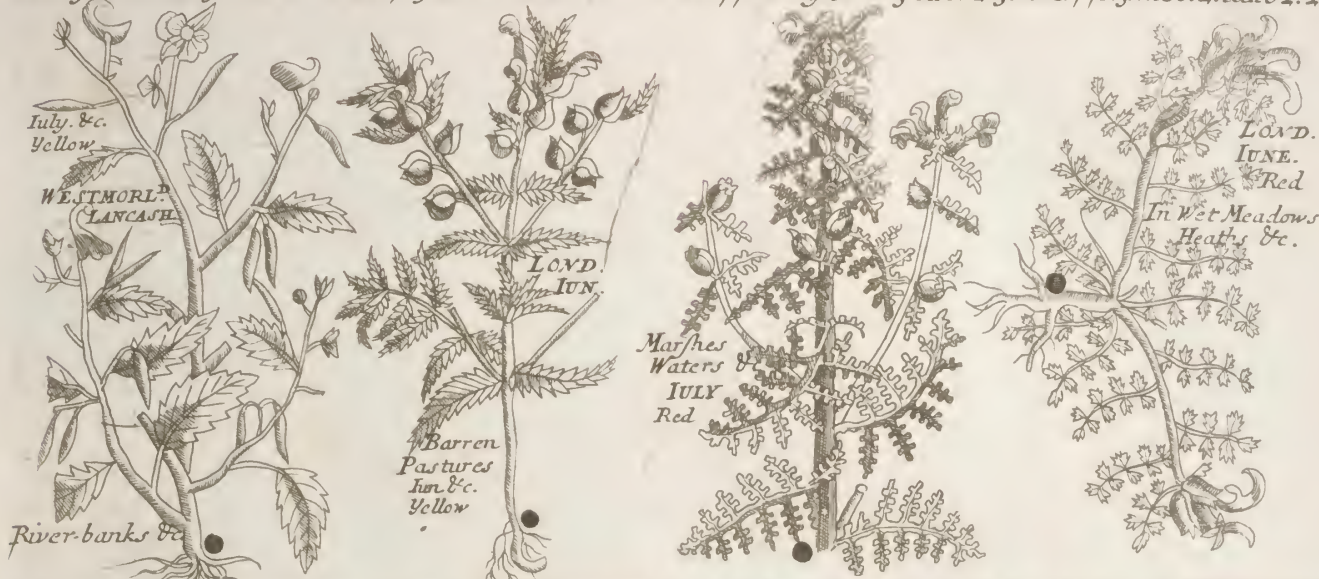 Iuly. &c.
Yellow
WESTMORLD.
LANCASH.
River-banks &c
LOND.
IUN.
Barren
Pastures
Iun &c.
Yellow
Marshes
Waters &
IULY
Red
LOND.
IUNE.
Red
In Wet Meadows
Heaths &c.